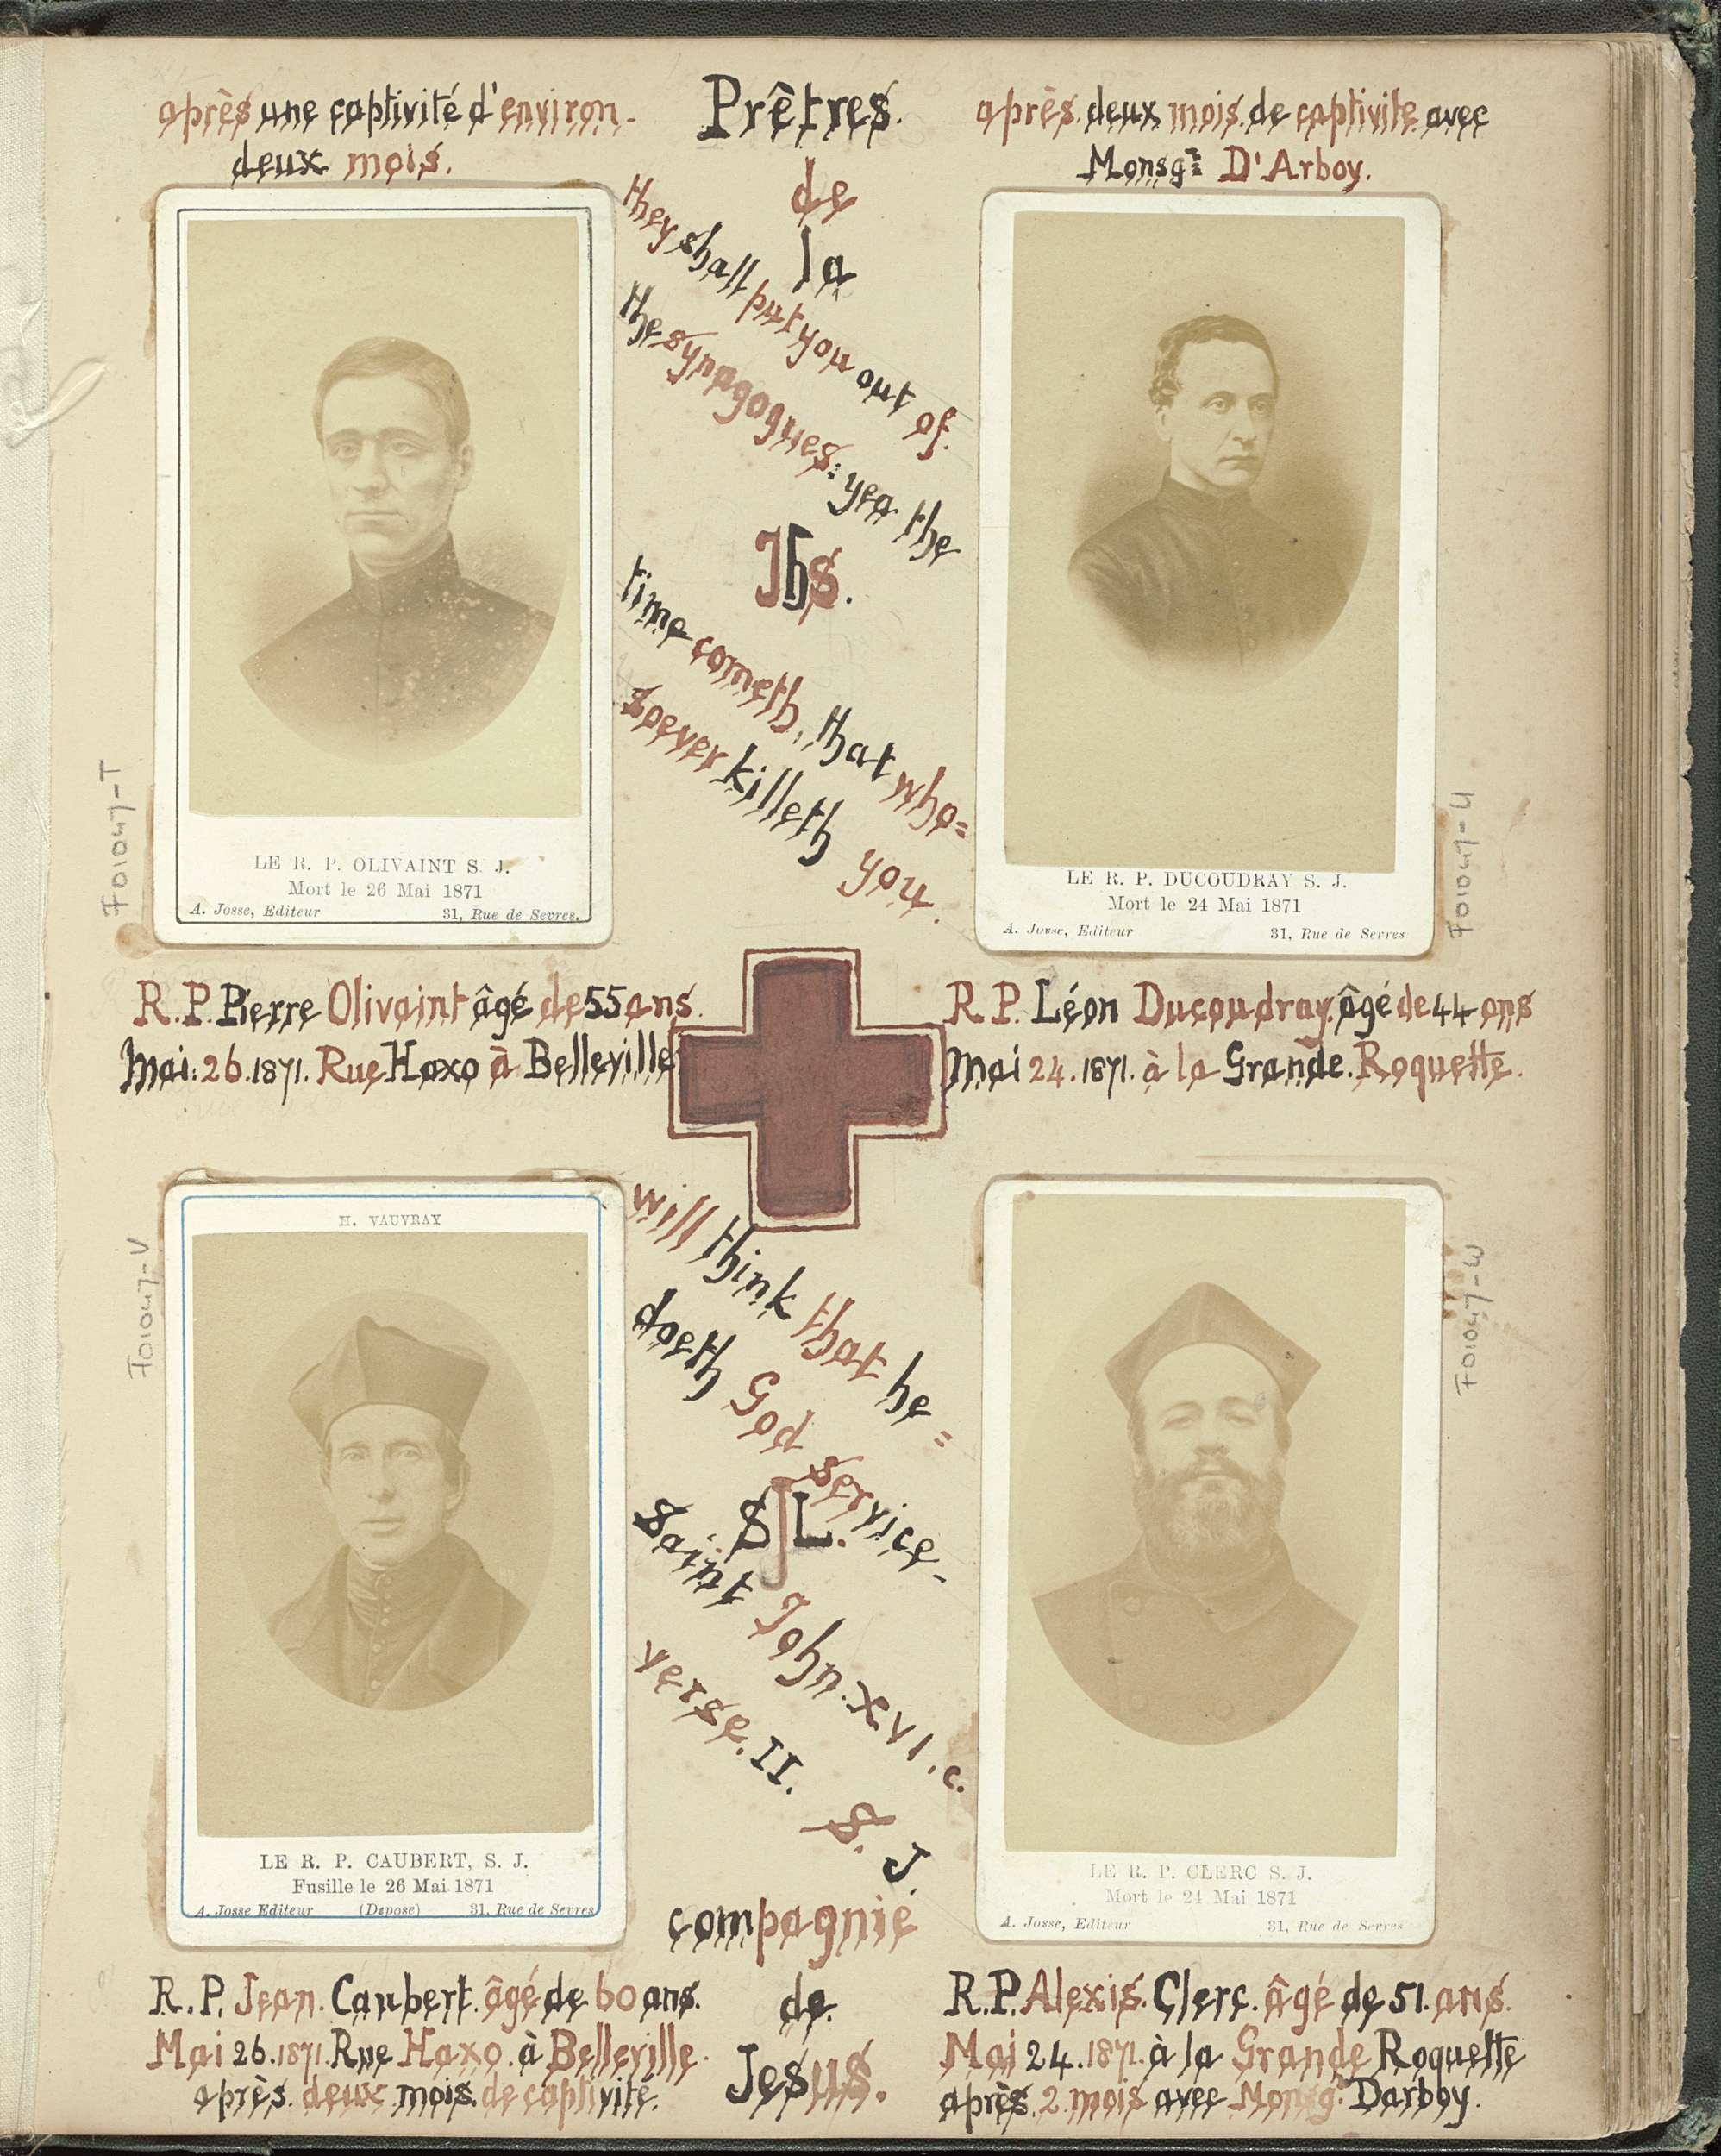 après une captivité d'environ-
deux mois.
Prêtres.
de
la
après deux mois de captivite avec
Monsgr D'Arboy.
they shall put you out of.
the synagogues: yea the
Jhs.
time cometh, that who=
soever killeth you.
LE R. P. OLIVAINT S. J.
Mort le 26 Mai 1871
A. Josse, Editeur 31, Rue de Sevres.
F01047-T
LE R. P. DUCOUDRAY S. J.
Mort le 24 Mai 1871
A. Josse, Editeur 31, Rue de Serres
F01047-U
R. P. Pierre Olivaint âgé de 55 ans.
Mai: 26. 1871. Rue Haxo à Belleville
R. P. Léon Ducoudray. âgé de 44 ans
Mai 24. 1871. à la Grande. Roquette.
H. VAUVRAY
LE R. P. CAUBERT, S. J.
Fusille le 26 Mai 1871
A. Josse Editeur (Depose) 31, Rue de Serres
F01047-V
will think that he=
doeth God service-
SJL.
Saint John. XVI. c.
verse. II.
S. J.
compagnie
de.
Jesus.
LE R. P. CLERC S. J.
Mort le 24 Mai 1871
A. Josse, Editeur 31, Rue de Serres
F01047-W
R. P. Jean. Caubert. âgé de 60 ans.
Mai 26. 1871. Rue Haxo. à Belleville.
après. deux mois. de captivité.
R. P. Alexis. Clerc. âgé de 51. ans.
Mai 24. 1871. à la Grande Roquette
après. 2 mois avec Monsgr. Darboy.